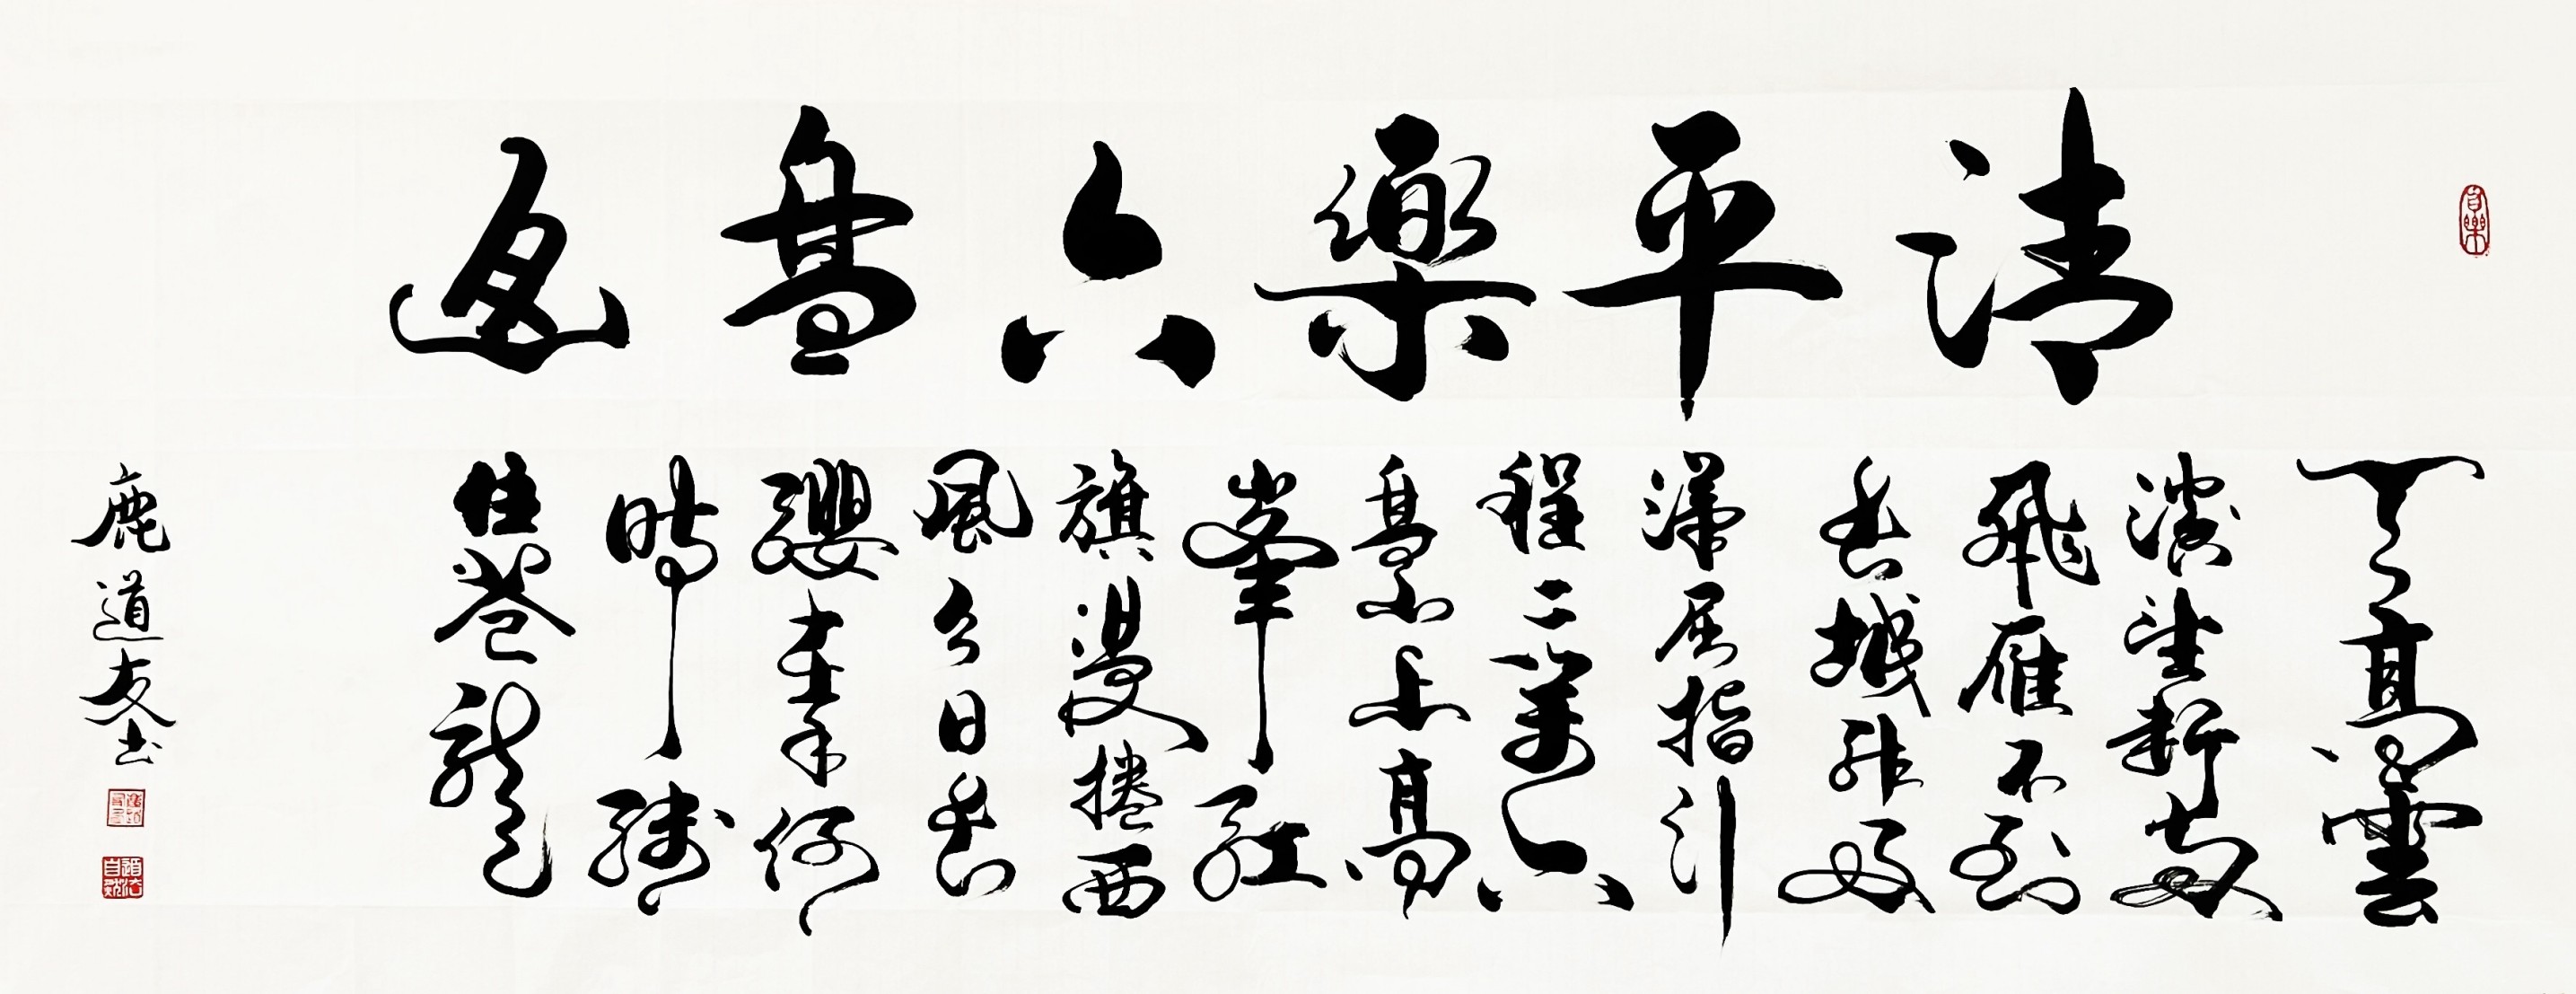 清平樂六盤
天高雲
淡望斷南
飛雁不到
長城非好
漢屈指行
程二萬六
盤山上高
峯紅
旗漫捲西
風今日長
纓在手何
時縛
住蒼龍
鹿道友书
道法自然